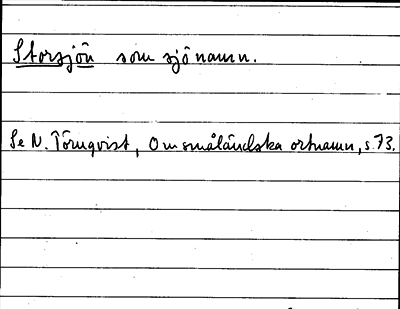 Storsjön som sjönamn.
Se N. Törnqvist, Om småländska ortnamn, s. 73.